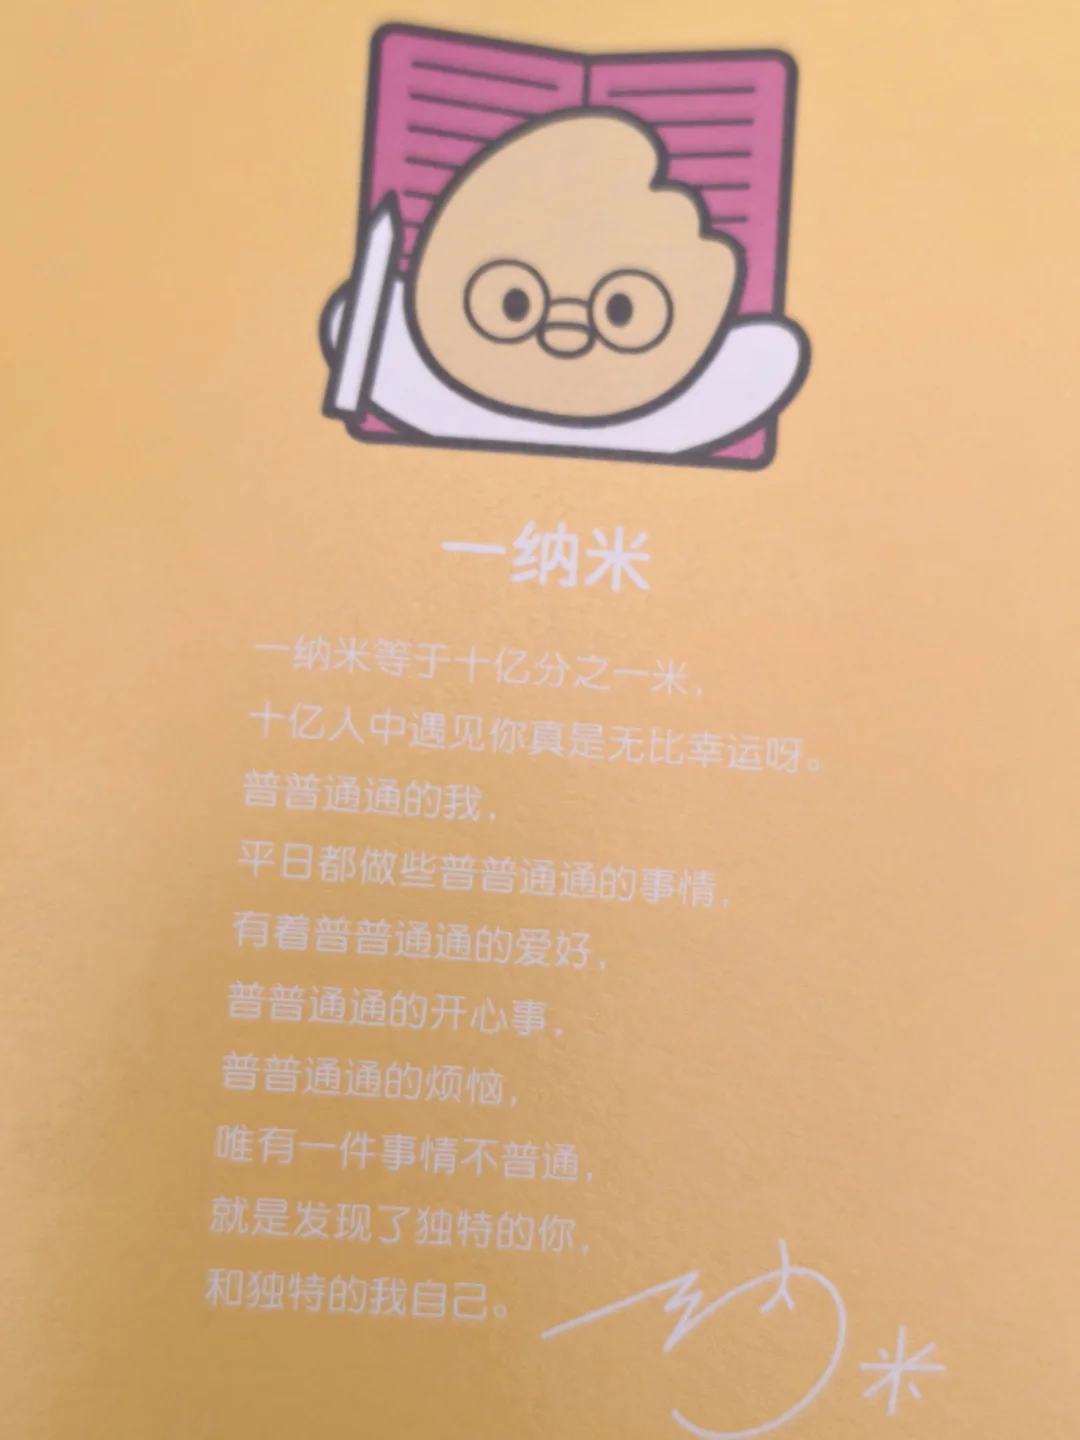 一纳米
一纳米等于十亿分之一米，
十亿人中遇见你真是无比幸运呀。
普普通通的我，
平日都做些普普通通的事情，
有着普普通通的爱好，
普普通通的开心事，
普普通通的烦恼，
唯有一件事情不普通，
就是发现了独特的你，
和独特的我自己。
纳米